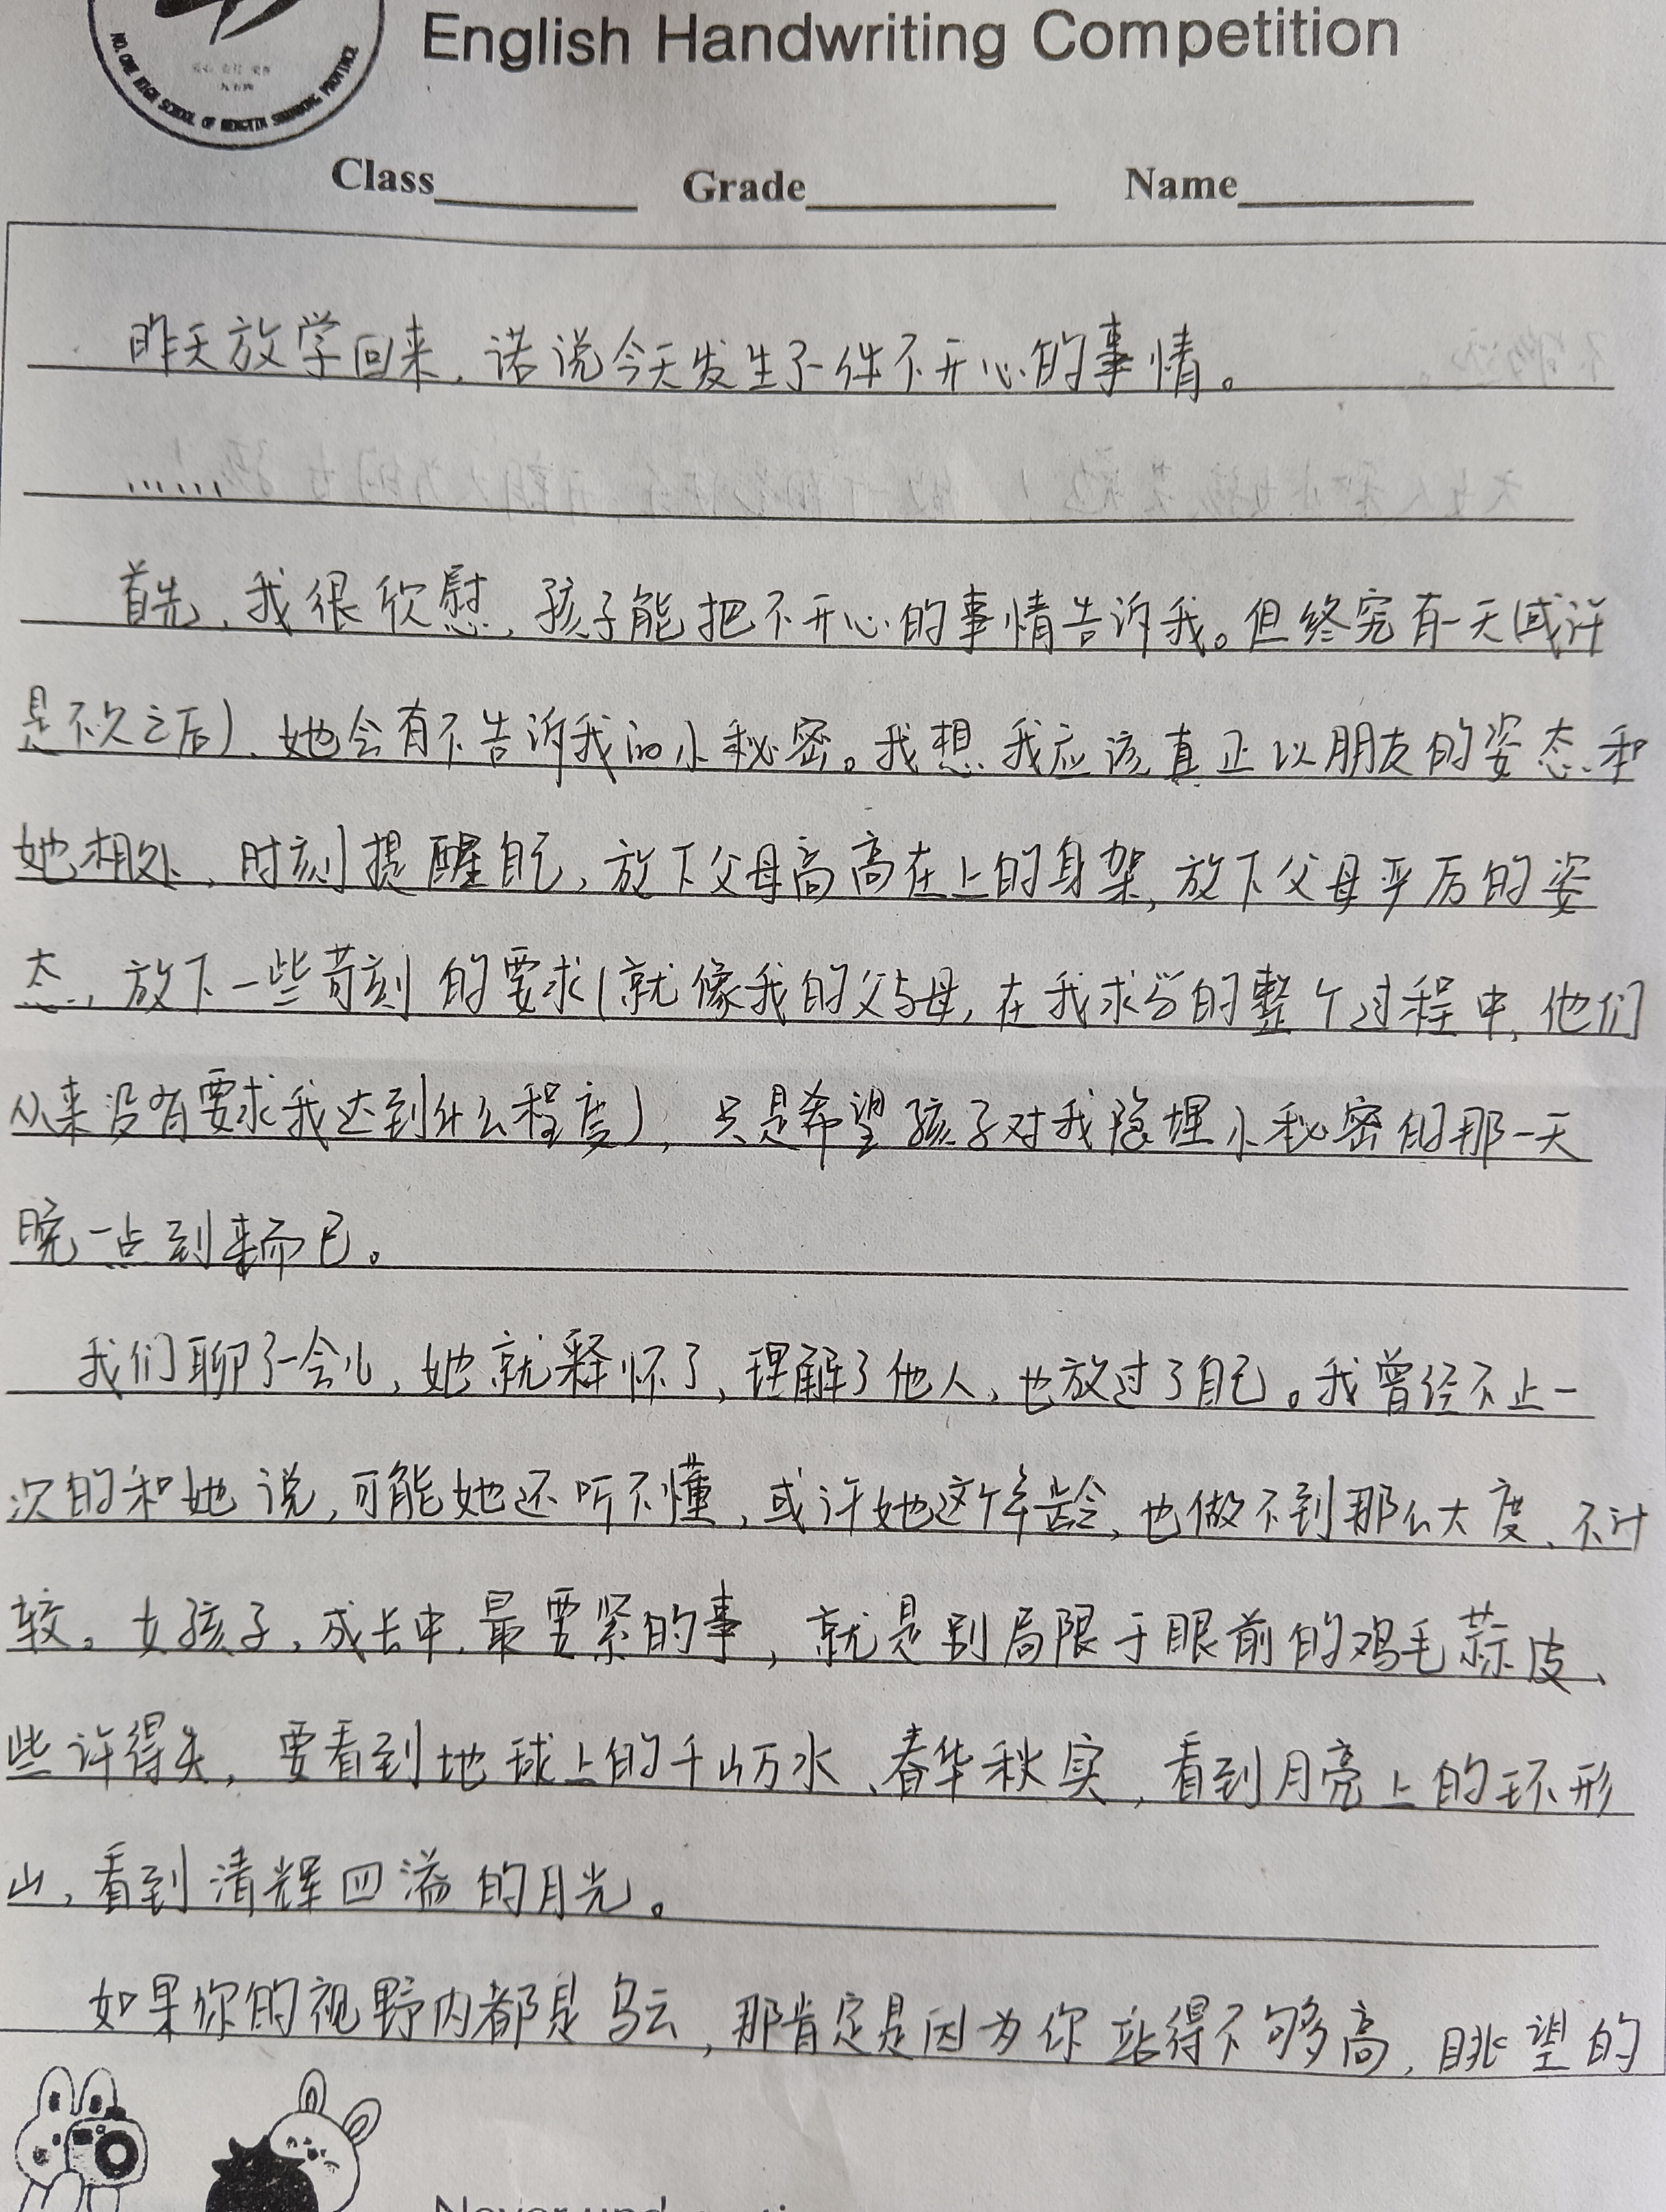 English Handwriting Competition
NO. ONE HIGH SCHOOL OF SHANDONG PROVINCE
Class Grade Name
昨天放学回来，诺说今天发生了一件不开心的事情。
……
首先，我很欣慰，孩子能把不开心的事情告诉我。但终究有一天（或许
是不久之后），她会有不告诉我的小秘密。我想，我应该真正以朋友的姿态和
她相处，时刻提醒自己，放下父母高高在上的身架，放下父母严厉的姿
态，放下一些苛刻的要求（就像我的父母，在我求学的整个过程中，他们
从来没有要求我达到什么程度），只是希望孩子对我隐埋小秘密的那一天
晚一点到来而已。
我们聊了一会儿，她就释怀了，理解了他人，也放过了自己。我曾经不止一
次的和她说，可能她还听不懂，或许她这个年龄，也做不到那么大度、不计
较。女孩子，成长中，最要紧的事，就是别局限于眼前的鸡毛蒜皮、
些许得失，要看到地球上的千山万水、春华秋实，看到月亮上的环形
山，看到清辉四溢的月光。
如果你的视野内都是乌云，那肯定是因为你站得不够高，眺望的